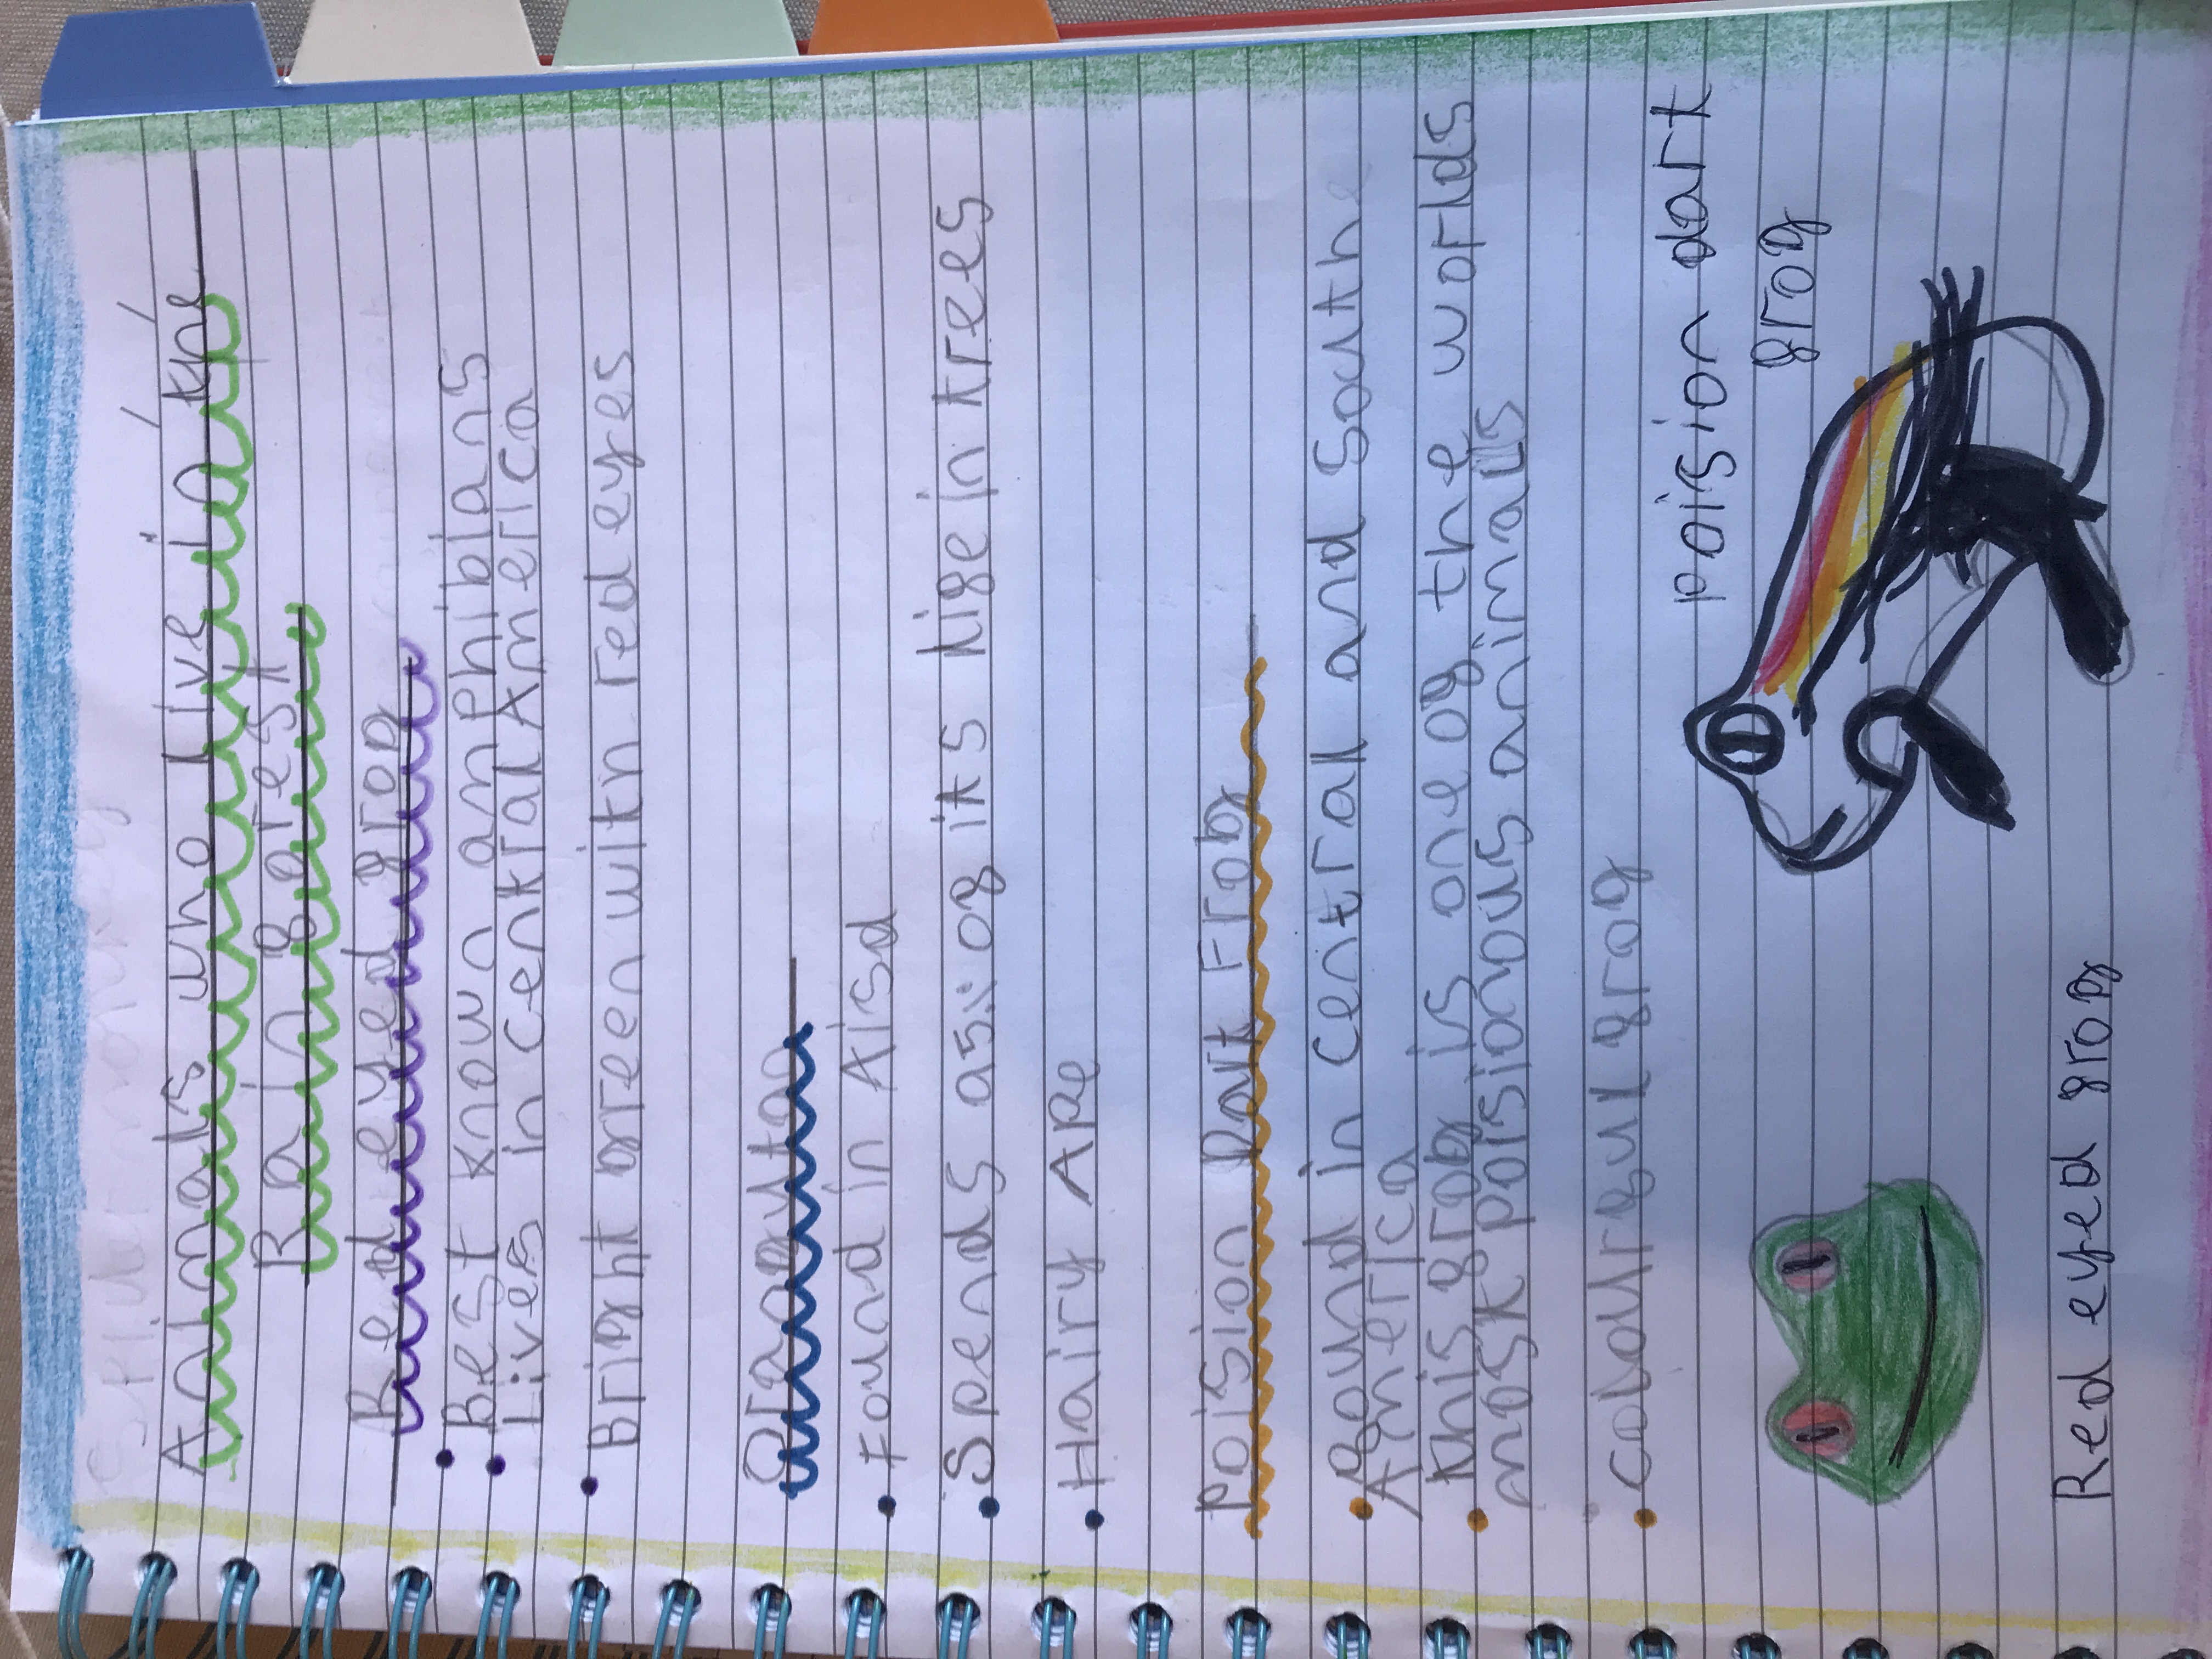 Animals who live in the
Rain forest
Red eyed frog
• Best known amphibians
• Lives in central America
• Bright green with red eyes
Orangutan
• Found in Aisa
• Spends of its life in trees
• Hairy Ape
Poision Dart Frog
• found in central and south
America
• this frog is one of the worlds
most poisionous animals
• colourful frog
poision dart
frog
Red eyed frog